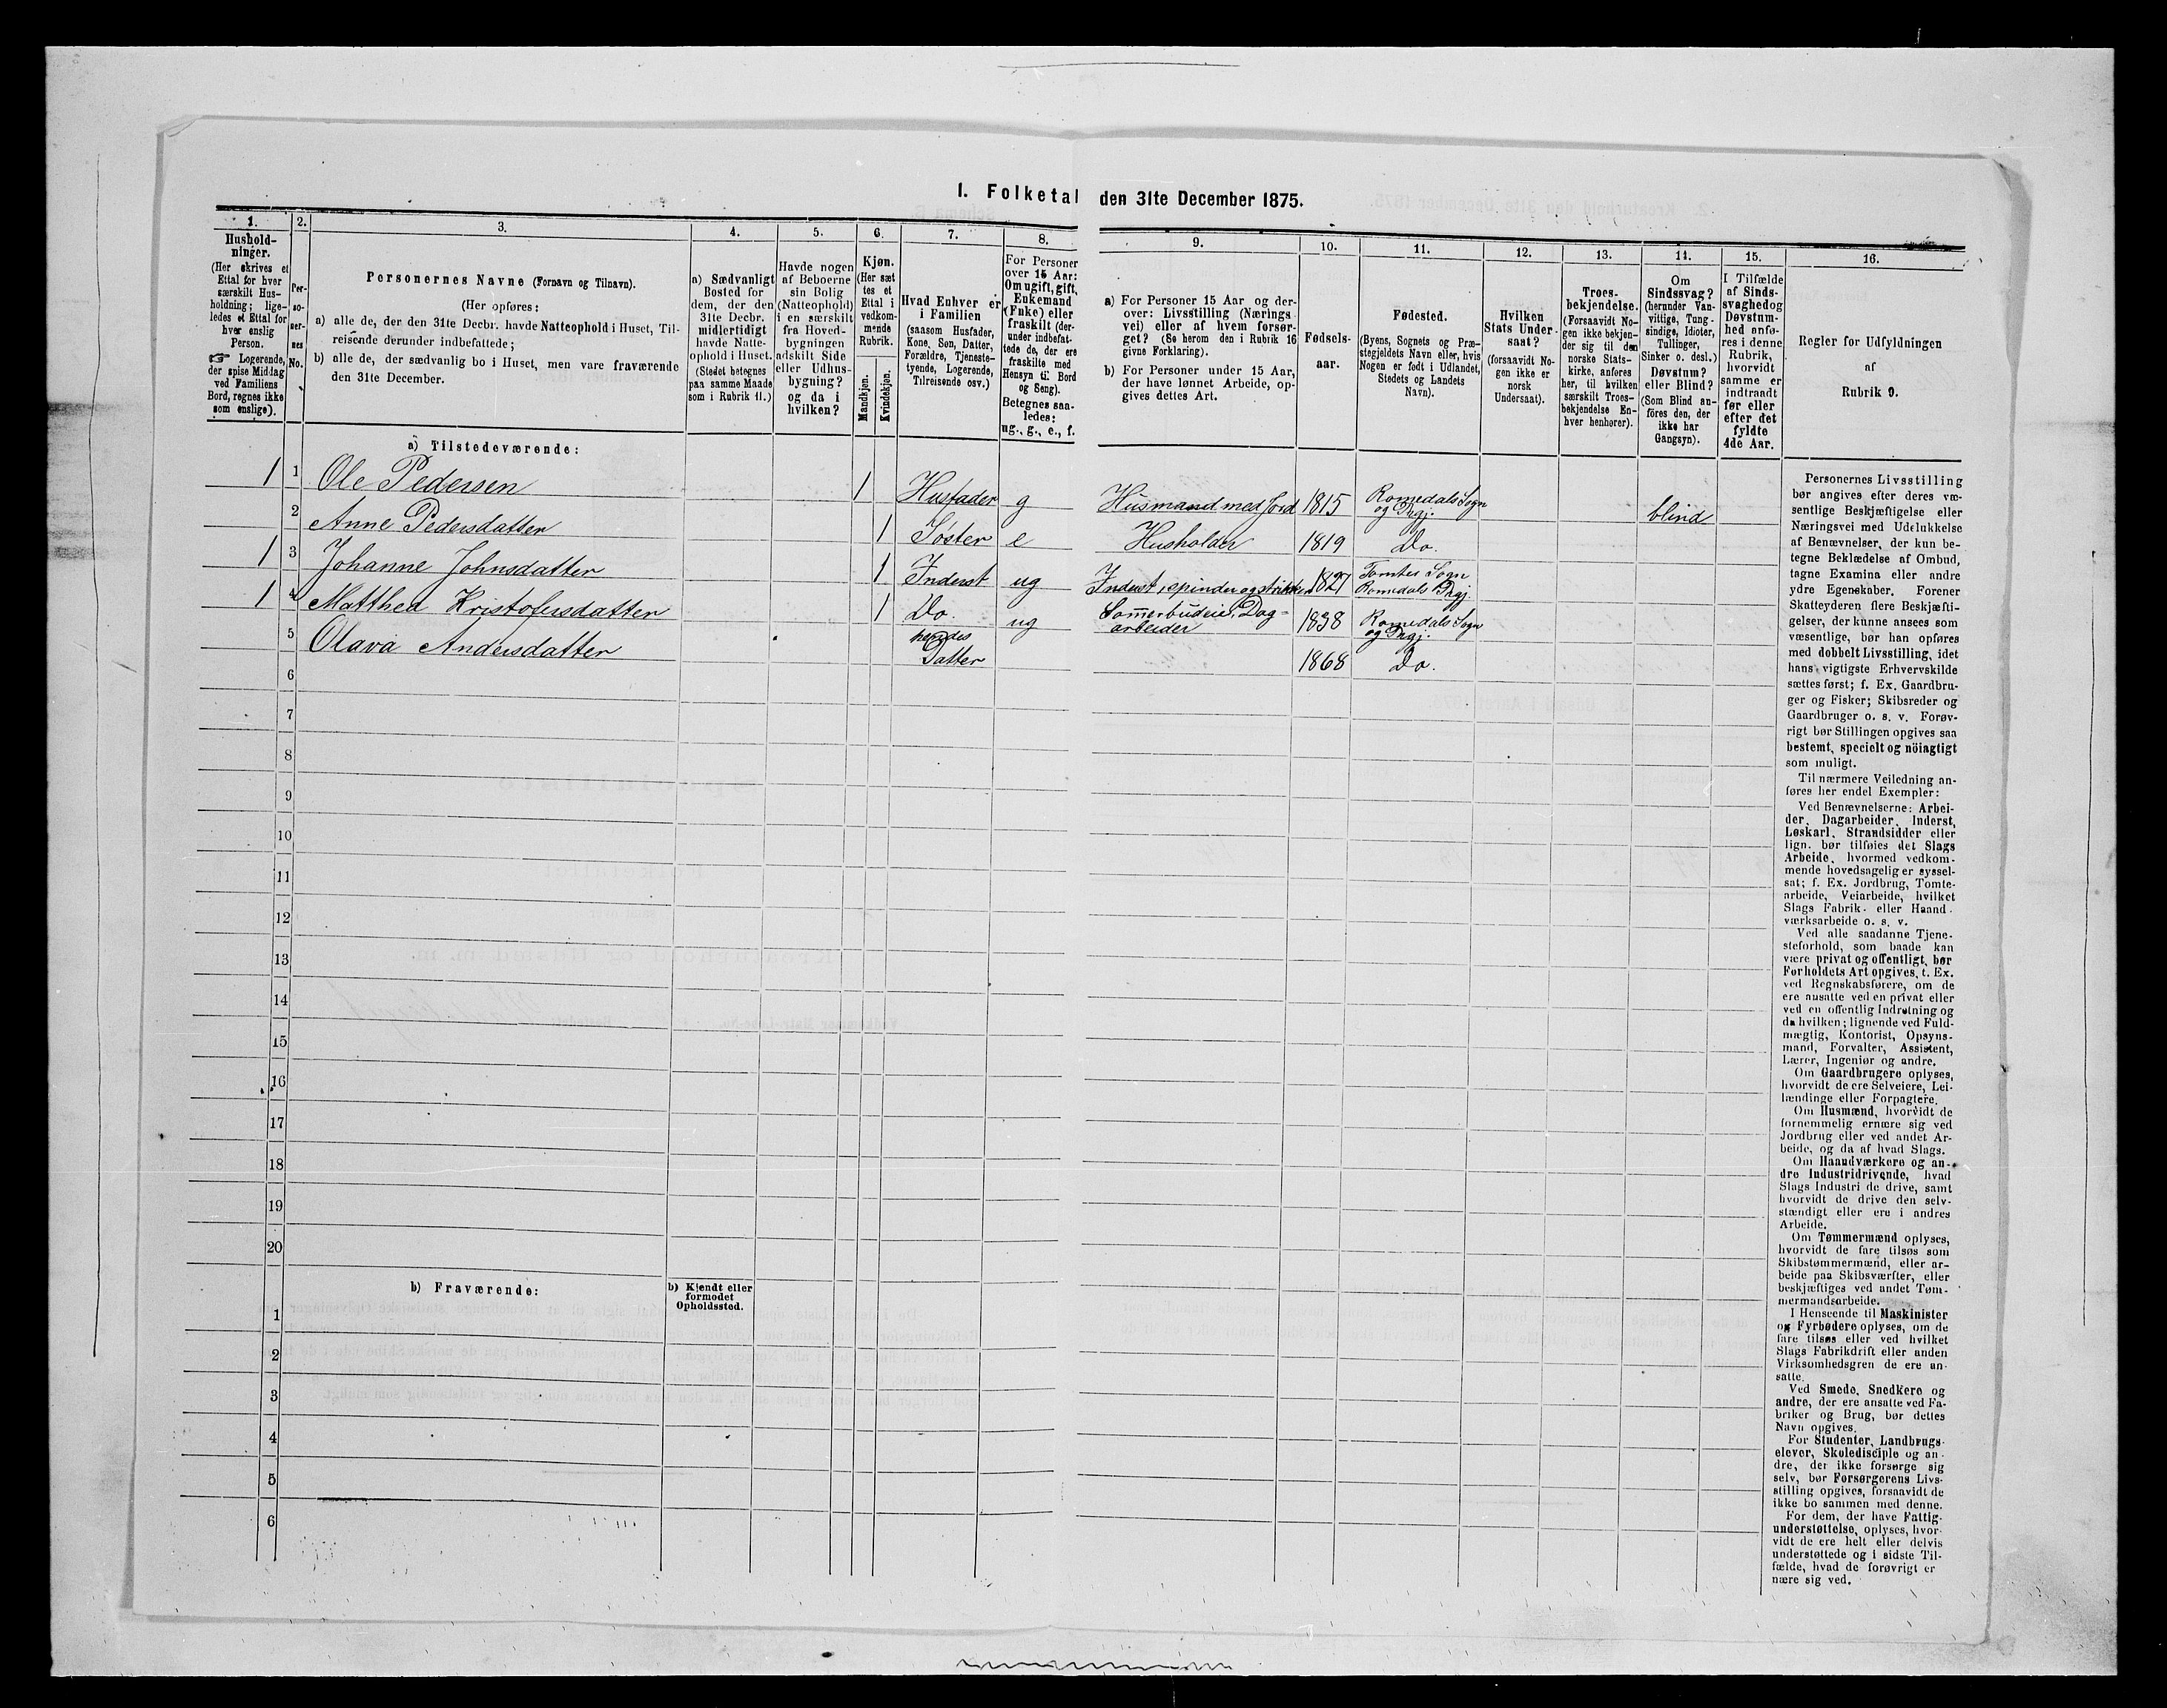 I. Folketal den 31te December 1875.
1.
Hushold-
ninger.
(Her skrives et
Ettal for hver
særskilt Hus-
holdning; lige-
ledes et Ettal for
hver enslig
Person.
☞ Logerende,
der spise Middag
ved Familiens
Bord, regnes ikke
som enslige).
2.
Per-
so-
ner-
nes
No.
3.
Personernes Navne (Fornavn og Tilnavn).
(Her opføres:
a) alle de, der den 31te Decbr. havde Natteophold i Huset, Til-
reisende derunder indbefattede;
b) alle de, der sædvanlig bo i Huset, men vare fraværende
den 31te December.
4.
a) Sædvanligt
Bosted for
dem, der den
31te Decbr.
midlertidigt
havde Natte-
ophold i Huset.
(Stedet betegnes
paa samme Maade
som i Rubrik 11.)
5.
Havde nogen
af Beboerne
sin Bolig
(Natteophold)
i en særskilt
fra Hoved-
bygningen
adskilt Side
eller Udhus-
bygning?
og da i
hvilken?
6.
Kjøn.
(Her sæt
tes et
Ettal i
vedkom-
mende
Rubrik.
Mandkjøn.
Kvindekjøn.
7.
Hvad Enhver er
i Familien
(saasom Husfader,
Kone, Søn, Datter,
Forældre, Tjeneste-
tyende, Logerende,
Tilreisende osv.)
8.
For Personer
over 15 Aar:
Om ugift, gift,
Enkemand
(Enke) eller
fraskilt (der-
under indbefat-
tede de, der ere
fraskilte med
Hensyn til Bord
og Seng).
Betegnes saa-
ledes:
ug., g., e., f.
9.
a) For Personer 15 Aar og der-
over: Livsstilling (Nærings
vei) eller af hvem forsør-
get? (Se herom den i Rubrik 16
givne Forklaring).
b) For Personer under 15 Aar,
der have lønnet Arbeide, op-
gives dettes Art.
10.
Fødsels-
aar.
11.
Fødested.
(Byens, Sognets og Præ-
stegjeldets Navn eller, hvis
Nogen er født i Udlandet,
Stedets og Landets
Navn).
12.
Hvilken
Stats Under-
saat?
(forsaavidt No-
gen ikke er
norsk
Undersaat).
13.
Troes-
bekjendelse.
(Forsaavidt No-
gen ikke bekjen-
der sig til den
norske Stats-
kirke, anføres
her, til hvilken
særskilt Troes-
bekjendelse En-
hver henhører).
14.
Om
Sindssvag?
(herunder Van-
vittige, Tung-
sindige, Idioter,
Tullinger,
Sinker o. desl.)
Døvstum?
eller Blind?
(Som Blind an-
føres den, der
ikke har
Gangsyn).
15.
I Tilfælde
af Sinds-
svaghed og
Døvstum-
hed anfø-
res i denne
Rubrik,
hvorvidt
samme er
indtraadt
før eller
efter det
fyldte
4de Aar.
16.
Regler for Udfyldningen
af
Rubrik 9.
a) Tilstedeværende:
1 1 Ole Pedersen 1 Husfader g Husmand med Jord 1815 Romedals Sogn og Prgj. blind
2 Anne Pedersdatter 1 Søster e Husholder 1819 Do.
1 3 Johanne Johnsdatter 1 Inderst ug Inderst, spinder og strikker 1827 Tomter Sogn Romedals Prgj.
1 4 Matthea Kristofersdatter 1 Do. ug Sommerbudeie, Dag-
arbeider 1838 Romedals Sogn og Prgj.
5 Olava Andersdatter hendes Datter 1868 Do.
6
7
8
9
10
11
12
13
14
15
16
17
18
19
20
b) Fraværende:
b) Kjendt eller
formodet
Opholdssted.
1
2
3
4
5
6
Personernes Livsstilling
bør angives efter deres væ-
sentlige Beskjæftigelse eller
Næringsvei med Udelukkelse
af Benævnelser, der kun be-
tegne Beklædelse af Ombud,
tagne Examina eller andre
ydre Egenskaber. Forener
Skatteyderen flere Beskjæfti-
gelser, der kunne ansees som
væsentlige, bør han opføres
med dobbelt Livsstilling, idet
hans vigtigste Erhvervskilde
sættes først; f. Ex. Gaardbru-
ger og Fisker; Skibsreder og
Gaardbruger o. s. v. Forøv-
rigt bør Stillingen opgives saa
bestemt, specielt og nöiagtigt
som muligt.
Til nærmere Veiledning an-
føres her endel Exempler:
Ved Benævnelserne: Arbei-
der, Dagarbeider, Inderst,
Løskarl, Strandsidder eller
lign. bør tilføies det Slags
Arbeide, hvormed vedkom-
mende hovedsagelig er syssel-
sat; f. Ex. Jordbrug, Tomte-
arbeide, Veiarbeide, hvilket
Slags Fabrik- eller Haand-
værksarbeide o. s. v.
Ved alle saadanne Tjene-
steforhold, som baade kan
være privat og offentligt, bør
Forholdets Art opgives, t. Ex.
ved Regnskabsførere, om de
ere ansatte ved en privat eller
ved en offentlig Indretning og
da hvilken; lignende ved Fuld-
mægtig, Kontorist, Opsyns-
mand, Forvalter, Assistent,
Lærer, Ingeniør og andre.
Om Gaardbrugere oplyses,
hvorvidt de ere Selveiere, Lei-
lændinge eller Forpagtere.
Om Husmænd, hvorvidt de
fornemmelig ernære sig ved
Jordbrug eller ved andet Ar-
beide, og da af hvad Slags.
Om Haandværkere og an-
dre Industridrivende, hvad
Slags Industri de drive, samt
hvorvidt de drive den selv-
stændigt eller ere i andres
Arbeide.
Om Tømmermænd oplyses,
hvorvidt de fare tilsøs som
Skibstømmermænd, eller ar-
beide paa Skibsværfter, eller
beskjæftiges ved andet Tøm-
mermandsarbeide.
I Henseende til Maskinister
og Fyrbødere oplyses, om de
fare tilsøs eller ved hvilket
Slags Fabrikdrift eller anden
Virksomhedsgren de ere an-
satte.
Ved Smede, Snedkere og
andre, der ere ansatte ved Fa-
briker og Brug, bør dettes
Navn opgives.
For Studenter, Landbrugs-
elever, Skoledisciple og an-
dre, der ikke forsørge sig
selv, bør Forsørgerens Livs-
stilling opgives, forsaavidt de
ikke bo sammen med denne.
For dem, der have Fattig-
understøttelse, oplyses, hvor-
vidt de ere helt eller delvis
understøttede og i sidste Til-
fælde, hvad de forøvrigt er
nære sig ved.